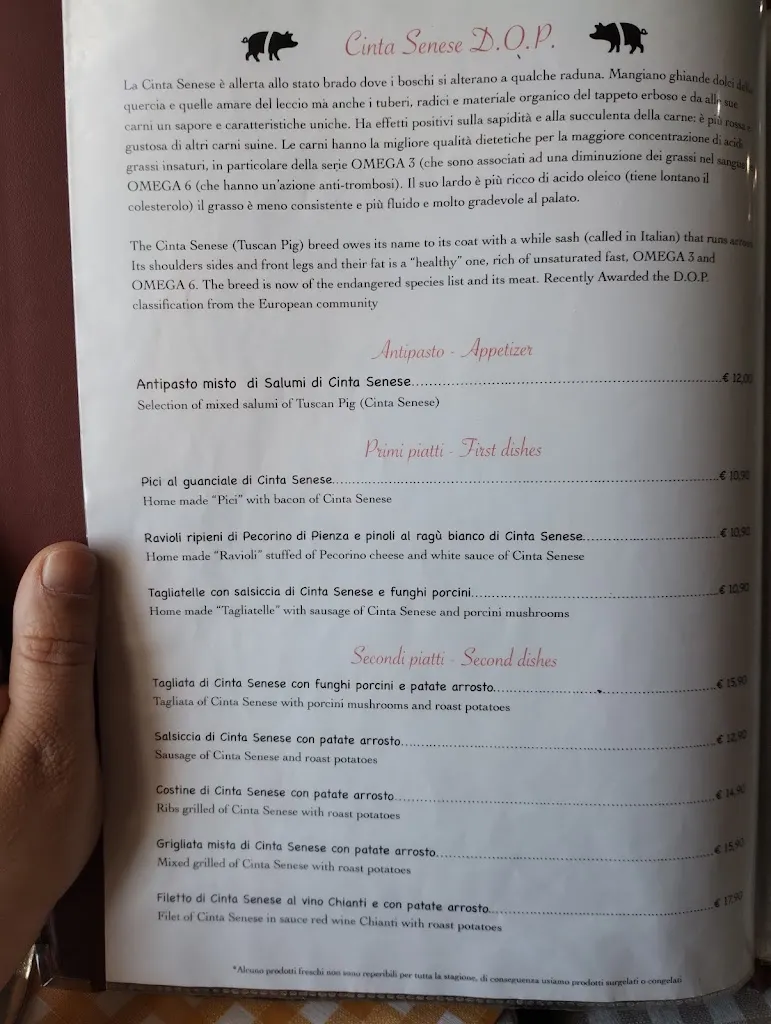 Cinta Senese D.O.P.
La Cinta Senese è allerta allo stato brado dove i boschi si alterano a qualche raduna. Mangiano ghiande dolci della
quercia e quelle amare del leccio ma anche i tuberi, radici e materiale organico del tappeto erboso e da alle sue
carni un sapore e caratteristiche uniche. Ha effetti positivi sulla sapidità e alla succulenta della carne: è più rossa e
gustosa di altri carni suine. Le carni hanno la migliore qualità dietetiche per la maggiore concentrazione di acidi
grassi insaturi, in particolare della serie OMEGA 3 (che sono associati ad una diminuzione dei grassi nel sangue
OMEGA 6 (che hanno un'azione anti-trombosi). Il suo lardo è più ricco di acido oleico (tiene lontano il
colesterolo) il grasso è meno consistente e più fluido e molto gradevole al palato.
The Cinta Senese (Tuscan Pig) breed owes its name to its coat with a while sash (called in Italian) that runs across
Its shoulders sides and front legs and their fat is a "healthy" one, rich of unsaturated fast, OMEGA 3 and
OMEGA 6. The breed is now of the endangered species list and its meat. Recently Awarded the D.O.P.
classification from the European community
Antipasto - Appetizer
Antipasto misto di Salumi di Cinta Senese € 12,00
Selection of mixed salumi of Tuscan Pig (Cinta Senese)
Primi piatti - First dishes
Pici al guanciale di Cinta Senese € 10,90
Home made "Pici" with bacon of Cinta Senese
Ravioli ripieni di Pecorino di Pienza e pinoli al ragù bianco di Cinta Senese € 10,90
Home made "Ravioli" stuffed of Pecorino cheese and white sauce of Cinta Senese
Tagliatelle con salsiccia di Cinta Senese e funghi porcini € 10,90
Home made "Tagliatelle" with sausage of Cinta Senese and porcini mushrooms
Secondi piatti - Second dishes
Tagliata di Cinta Senese con funghi porcini e patate arrosto € 15,90
Tagliata of Cinta Senese with porcini mushrooms and roast potatoes
Salsiccia di Cinta Senese con patate arrosto € 12,90
Sausage of Cinta Senese and roast potatoes
Costine di Cinta Senese con patate arrosto € 14,90
Ribs grilled of Cinta Senese with roast potatoes
Grigliata mista di Cinta Senese con patate arrosto € 15,90
Mixed grilled of Cinta Senese with roast potatoes
Filetto di Cinta Senese al vino Chianti e con patate arrosto € 17,90
Filet of Cinta Senese in sauce red wine Chianti with roast potatoes
*Alcuno prodotti freschi non sono reperibili per tutta la stagione, di conseguenza usiamo prodotti surgelati o congelati